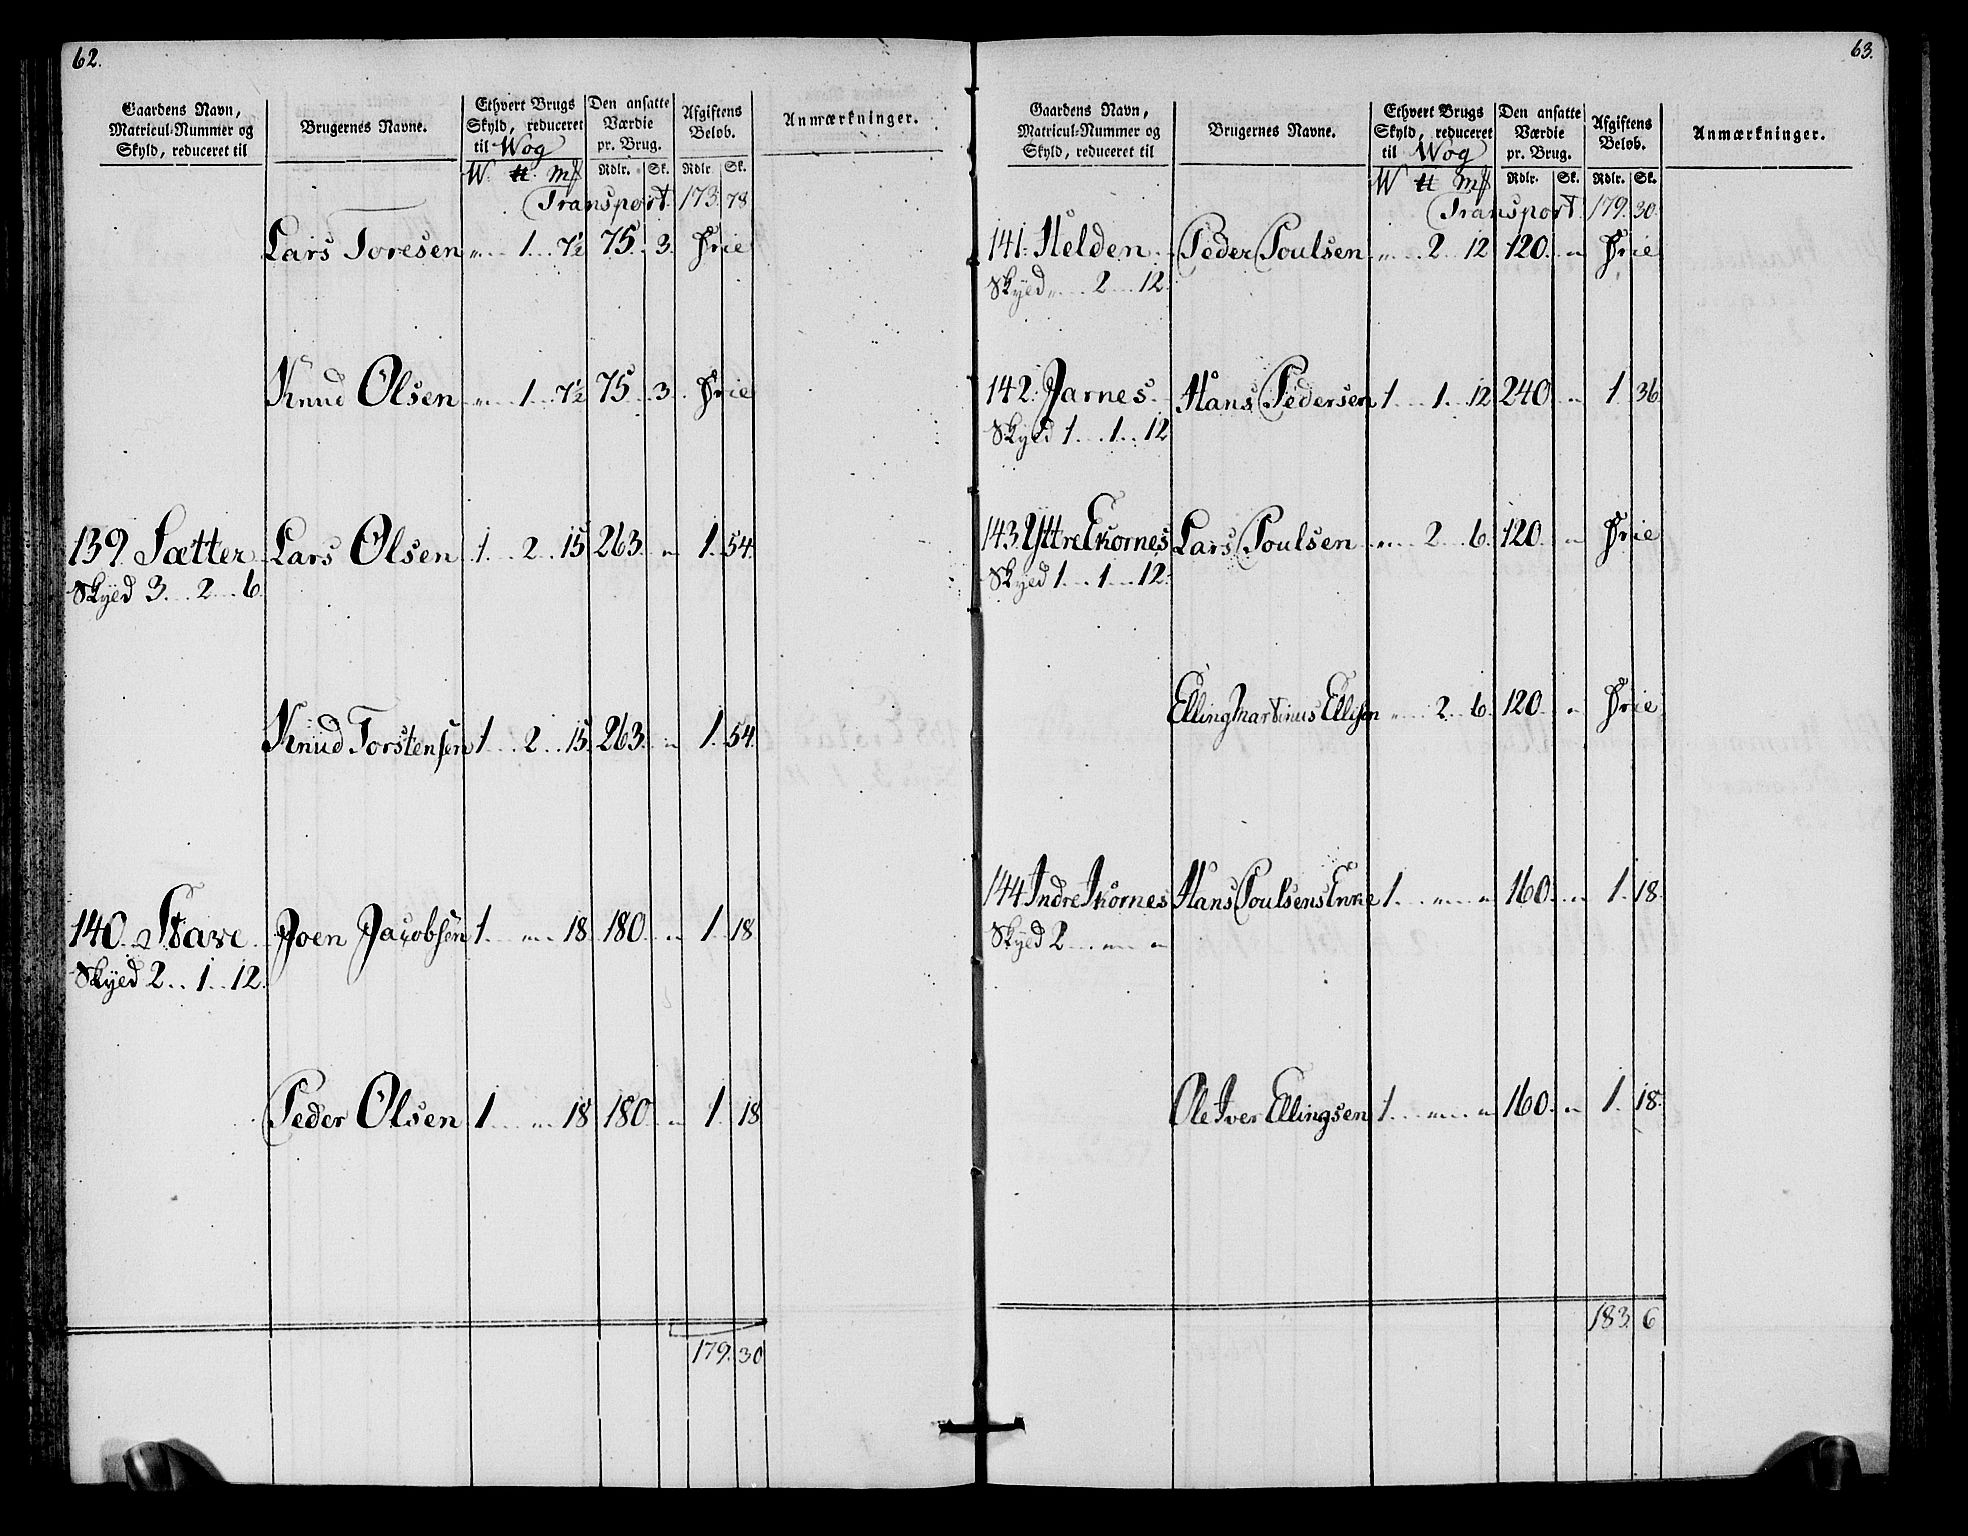 62.
Gaardens Navn, Matricul-Nummer og Skyld, reduceret til | Brugernes Navne. | Ethvert Brugs Skyld, reduceret til Wog | Den ansatte Værdie pr. Brug. | Afgiftens Beløb. | Anmærkninger.
W. ℔ mk | Rdlr. Sk. | Rdlr. Sk.
Transport. 173. 78
Lars Toresen „ 1 7½ 75. 3. Frie
Knud Olsen „ 1 7½ 75. 3. Frie
139. Sætter Lars Olsen 1. 2. 15 263. „ 1. 54.
Skyld 3. 2. 6
Knud Torstensen 1. 2. 15. 263. „ 1. 54.
140. Stave Joen Jacobsen 1. „ 18. 180. „ 1. 18
Skyld 2. 1. 12.
Peder Olsen 1. „ 18 180. „ 1. 18
179. 30
63.
Gaardens Navn, Matricul-Nummer og Skyld, reduceret til | Brugernes Navne. | Ethvert Brugs Skyld, reduceret til Wog | Den ansatte Værdie pr. Brug. | Afgiftens Beløb. | Anmærkninger.
W ℔ mk | Rdlr. Sk. | Rdlr. Sk.
Transport. 179. 30.
141. Helden Peder Poulsen „ 2 12 120. „ Frie
Skyld „ 2 12
142. Jarnes Hans Pedersen 1. 1. 12 240. „ 1. 36.
Skyld 1. 1. 12
143. Yttre Ekornes Lars Poulsen „ 2 6. 120. „ Frie
Skyld 1. 1. 12.
Elling Martinus Ellisen „ 2. 6. 120. „ Frie
144 Indre Ikornes Hans Poulsens Enke 1. „ „ 160. „ 1. 18.
Skyld 2. „ „
Ole Iver Ellingsen 1. „ „ 160. „ 1. 18.
183. 6